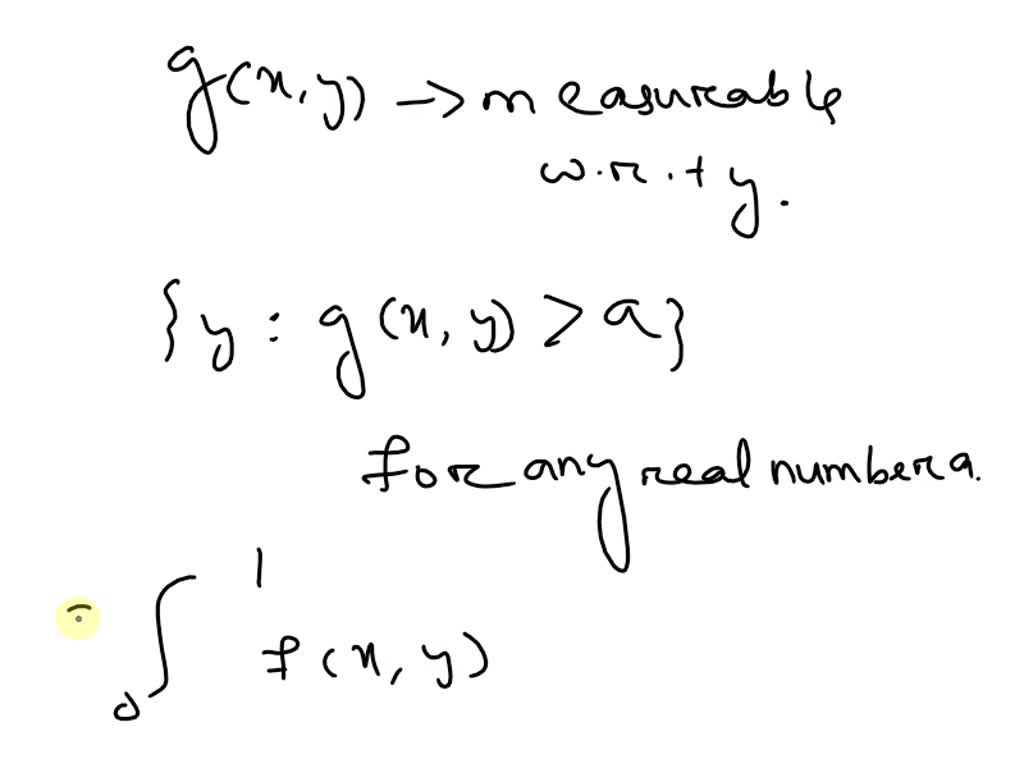 g(x,y) → measurable
w.r.t y.
{y : g(x,y) > a}
for any real number a.
∫₀¹ f(x,y)